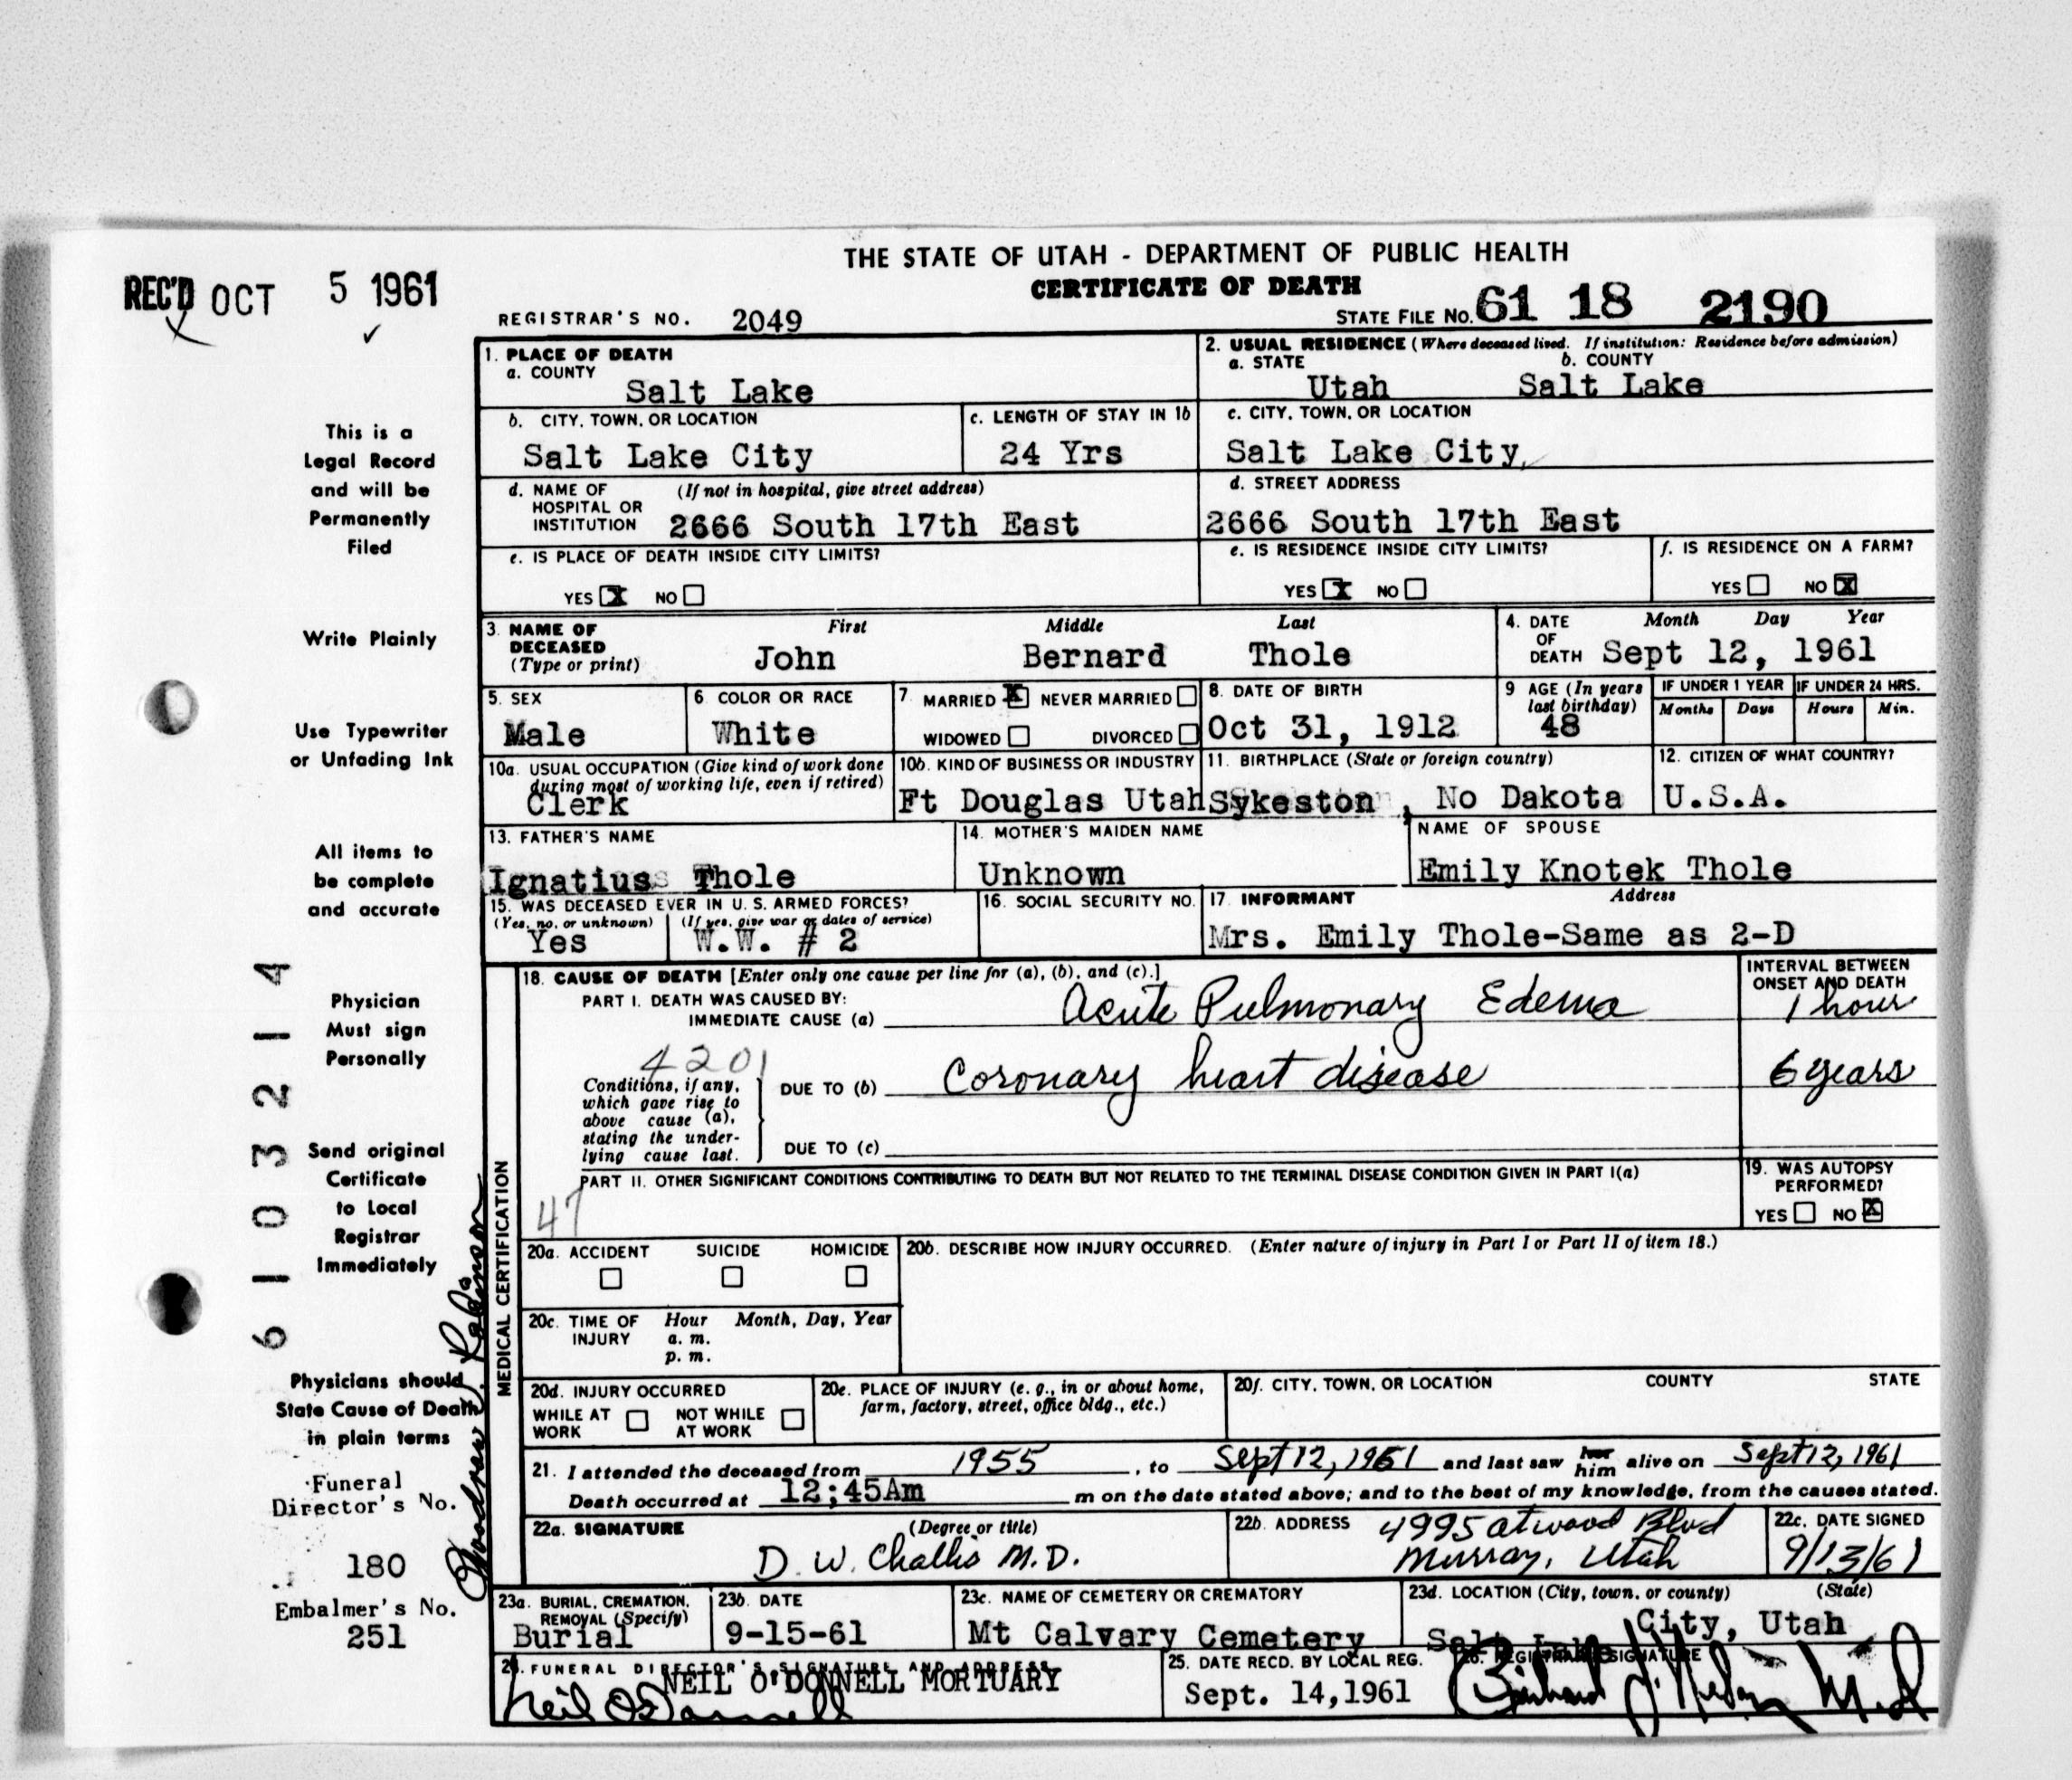 THE STATE OF UTAH - DEPARTMENT OF PUBLIC HEALTH
CERTIFICATE OF DEATH
REC'D OCT 5 1961
REGISTRAR'S NO. 2049
STATE FILE NO. 61 18 2190
1. PLACE OF DEATH
a. COUNTY
Salt Lake
2. USUAL RESIDENCE (Where deceased lived. If institution: Residence before admission)
a. STATE b. COUNTY
Utah Salt Lake
b. CITY, TOWN, OR LOCATION
Salt Lake City
c. LENGTH OF STAY IN 1b
24 Yrs
c. CITY, TOWN, OR LOCATION
Salt Lake City,
d. NAME OF (If not in hospital, give street address)
HOSPITAL OR
INSTITUTION 2666 South 17th East
d. STREET ADDRESS
2666 South 17th East
e. IS PLACE OF DEATH INSIDE CITY LIMITS?
YES X NO
e. IS RESIDENCE INSIDE CITY LIMITS?
YES X NO
f. IS RESIDENCE ON A FARM?
YES NO X
3. NAME OF First Middle Last
DECEASED
(Type or print) John Bernard Thole
4. DATE Month Day Year
OF
DEATH Sept 12, 1961
5. SEX
Male
6 COLOR OR RACE
White
7. MARRIED X NEVER MARRIED
WIDOWED DIVORCED
8. DATE OF BIRTH
Oct 31, 1912
9 AGE (In years
last birthday)
48
IF UNDER 1 YEAR IF UNDER 24 HRS.
Months Days Hours Min.
10a. USUAL OCCUPATION (Give kind of work done
during most of working life, even if retired)
Clerk
10b. KIND OF BUSINESS OR INDUSTRY
Ft Douglas Utah
11. BIRTHPLACE (State or foreign country)
Sykeston, No Dakota
12. CITIZEN OF WHAT COUNTRY?
U.S.A.
13. FATHER'S NAME
Ignatius Thole
14. MOTHER'S MAIDEN NAME
Unknown
NAME OF SPOUSE
Emily Knotek Thole
15. WAS DECEASED EVER IN U. S. ARMED FORCES?
(Yes, no, or unknown) (If yes, give war or dates of service)
Yes W.W. # 2
16. SOCIAL SECURITY NO.
17. INFORMANT Address
Mrs. Emily Thole-Same as 2-D
MEDICAL CERTIFICATION
18. CAUSE OF DEATH [Enter only one cause per line for (a), (b), and (c).]
INTERVAL BETWEEN
ONSET AND DEATH
PART I. DEATH WAS CAUSED BY:
IMMEDIATE CAUSE (a) Acute Pulmonary Edema 1 hour
4201
Conditions, if any,
which gave rise to
above cause (a),
stating the under-
lying cause last.
DUE TO (b) Coronary heart disease 6 years
DUE TO (c)
PART II. OTHER SIGNIFICANT CONDITIONS CONTRIBUTING TO DEATH BUT NOT RELATED TO THE TERMINAL DISEASE CONDITION GIVEN IN PART I(a)
47
19. WAS AUTOPSY
PERFORMED?
YES NO X
20a. ACCIDENT SUICIDE HOMICIDE
20b. DESCRIBE HOW INJURY OCCURRED. (Enter nature of injury in Part I or Part II of item 18.)
20c. TIME OF Hour Month, Day, Year
INJURY a. m.
p. m.
20d. INJURY OCCURRED
WHILE AT NOT WHILE
WORK AT WORK
20e. PLACE OF INJURY (e. g., in or about home,
farm, factory, street, office bldg., etc.)
20f. CITY, TOWN, OR LOCATION COUNTY STATE
21. I attended the deceased from 1955, to Sept 12, 1961 and last saw her him alive on Sept 12, 1961
Death occurred at 12;45Am m on the date stated above; and to the best of my knowledge, from the causes stated.
22a. SIGNATURE (Degree or title)
D. W. Challis M.D.
22b. ADDRESS 4995 Atwood Blvd
Murray, Utah
22c. DATE SIGNED
9/13/61
23a. BURIAL, CREMATION,
REMOVAL (Specify)
Burial
23b. DATE
9-15-61
23c. NAME OF CEMETERY OR CREMATORY
Mt Calvary Cemetery
23d. LOCATION (City, town, or county) (State)
Salt Lake City, Utah
24. FUNERAL DIRECTOR'S SIGNATURE AND ADDRESS
NEIL O'DONNELL MORTUARY
Neil O'Donnell
25. DATE RECD. BY LOCAL REG.
Sept. 14,1961
26. REGISTRAR'S SIGNATURE
This is a
Legal Record
and will be
Permanently
Filed
Write Plainly
Use Typewriter
or Unfading Ink
All items to
be complete
and accurate
Physician
Must sign
Personally
Send original
Certificate
to Local
Registrar
Immediately
Physicians should
State Cause of Death
in plain terms
Funeral
Director's No.
180
Embalmer's No.
251
6103214
Woodrow J. Robinson